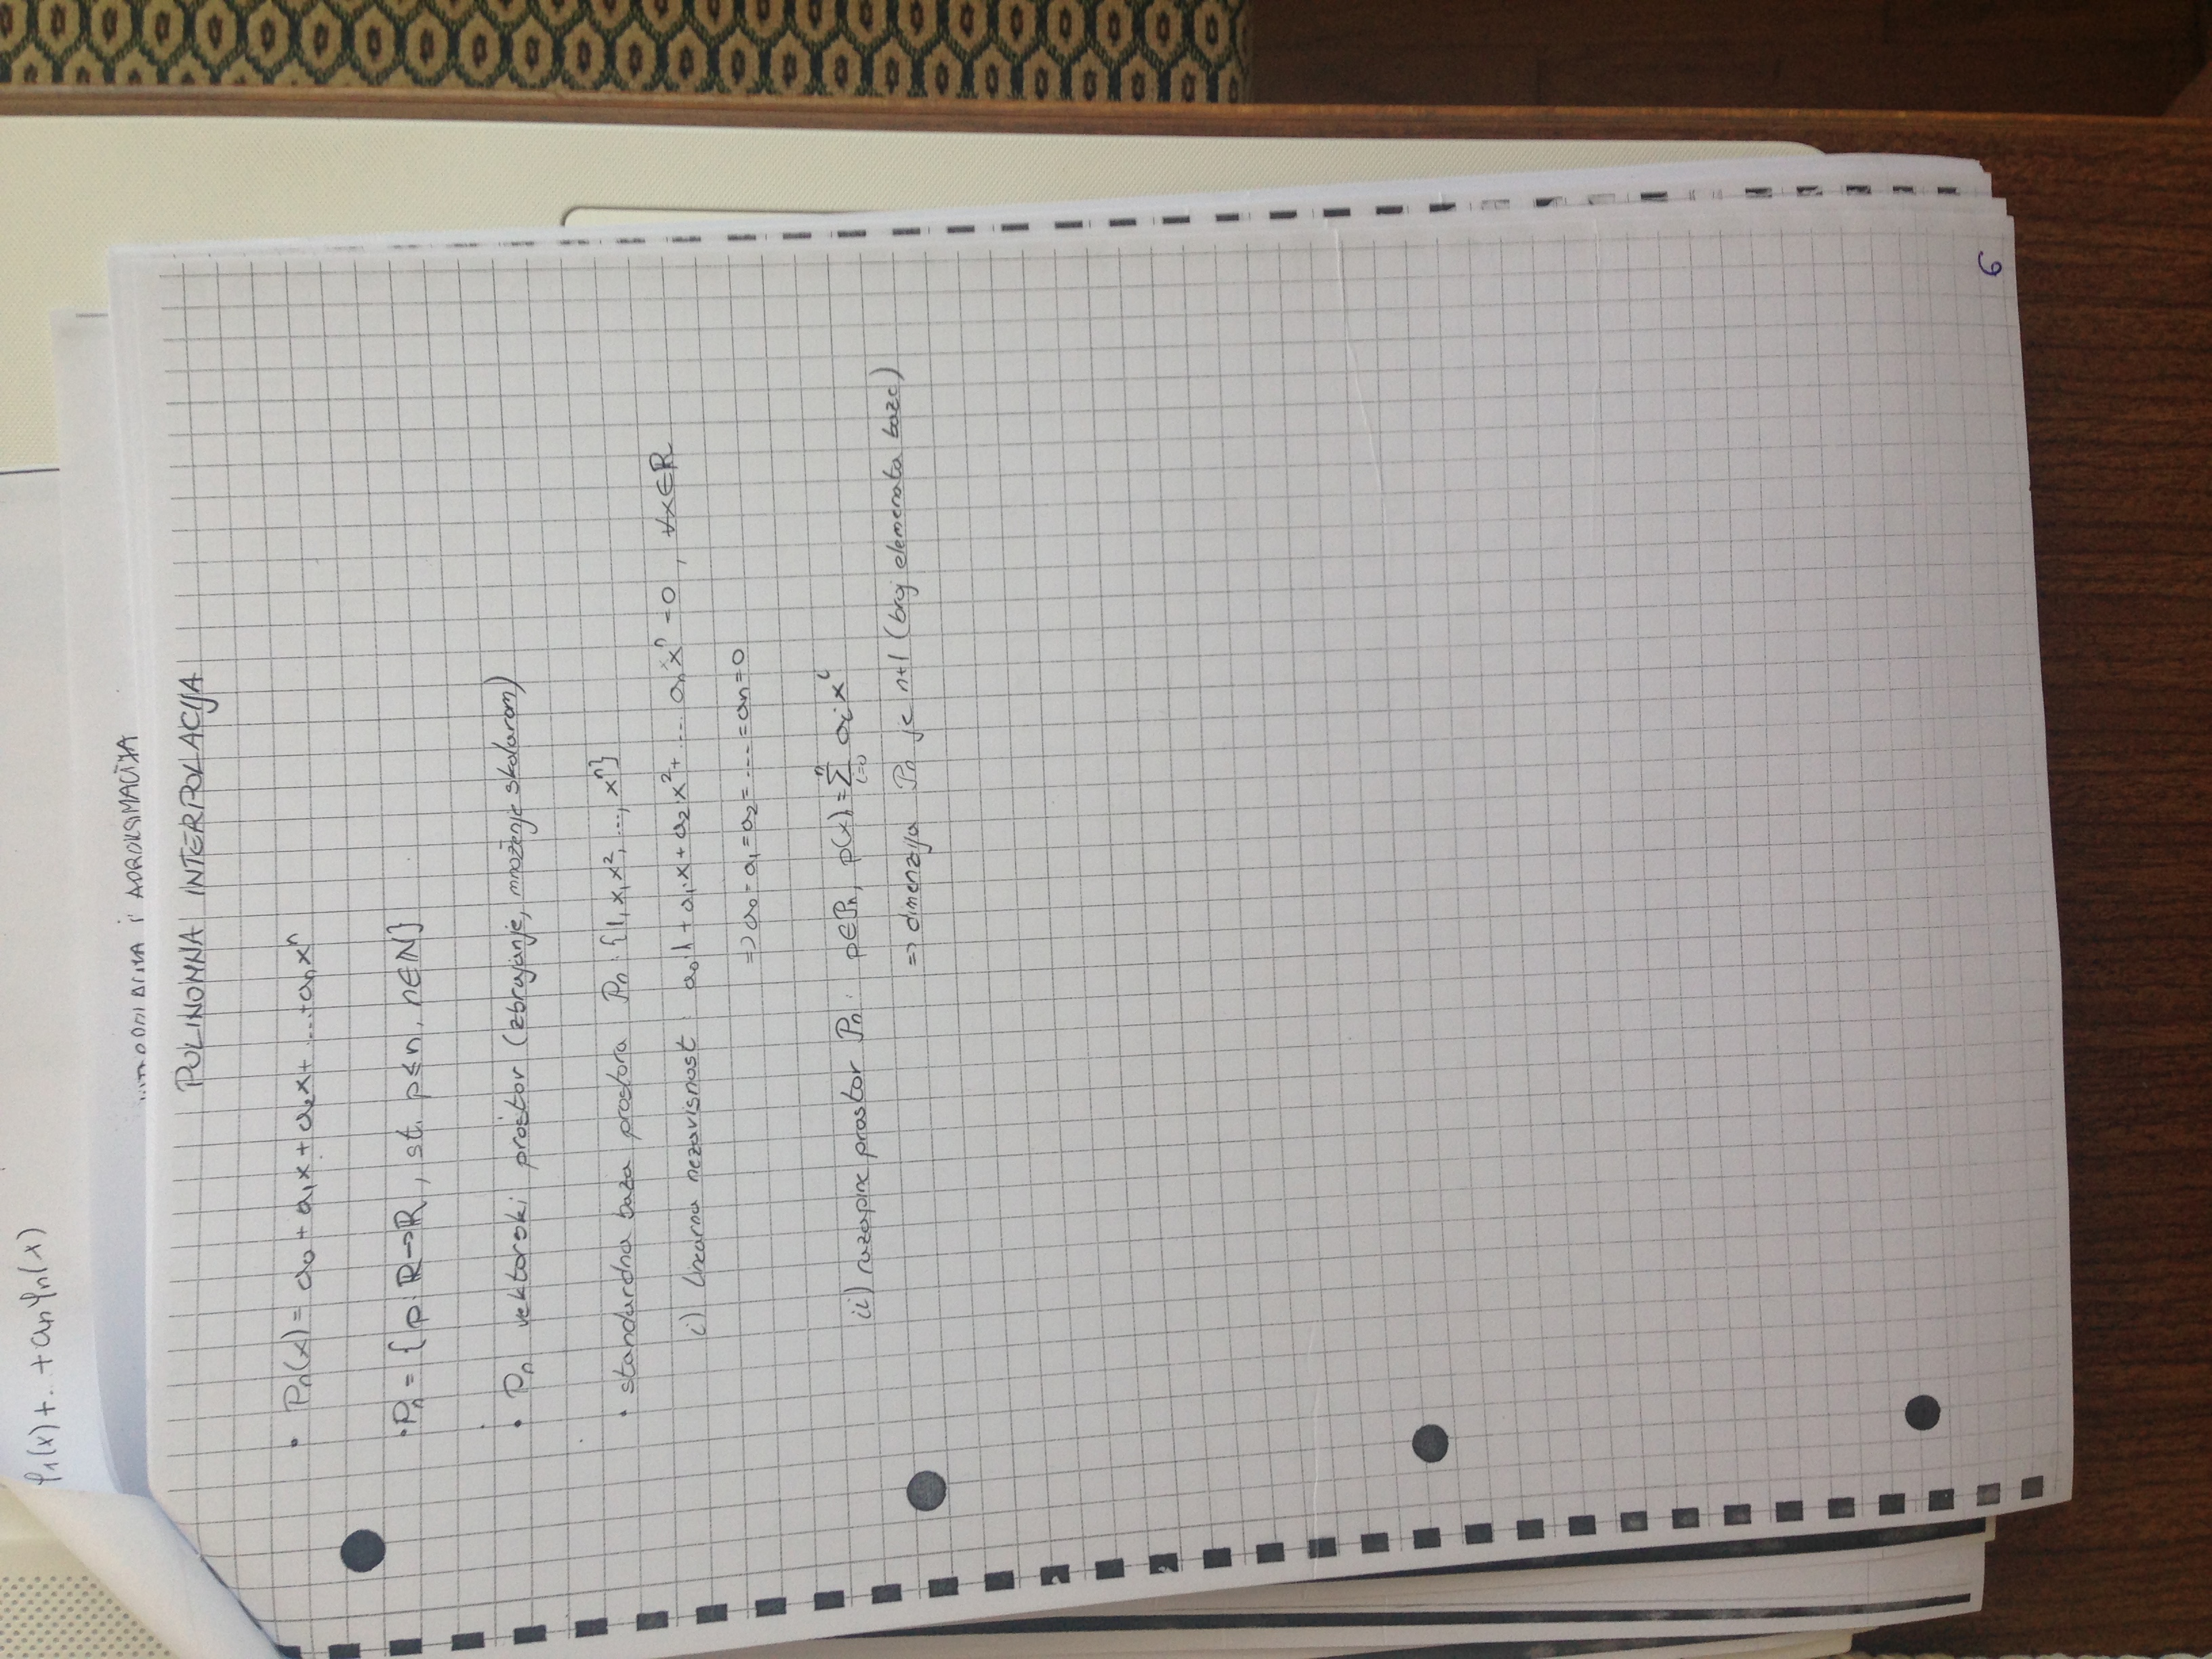 φ₁(x)+..+aₙφₙ(x)
i APROKSIMACIJA
POLINOMNA INTERPOLACIJA
• Pₙ(x) = a₀ + a₁x + a₂x + ... + aₙxⁿ
• Pₙ = {p: R→R, st. p≤n, n∈N}
• Pₙ vektorski prostor (zbrajanje, množenje skalarom)
• standardna baza prostora Pₙ: {1, x, x², ..., xⁿ}
i) linearna nezavisnost: a₀·1 + a₁·x + a₂x² + ... aₙxⁿ = 0, ∀x∈R
=> a₀ = a₁ = a₂ = .... = aₙ = 0
ii) razapinje prostor Pₙ: p∈Pₙ, p(x) = ∑ⁿᵢ₌₀ aᵢxⁱ
=> dimenzija Pₙ je n+1 (broj elemenata baze)
6